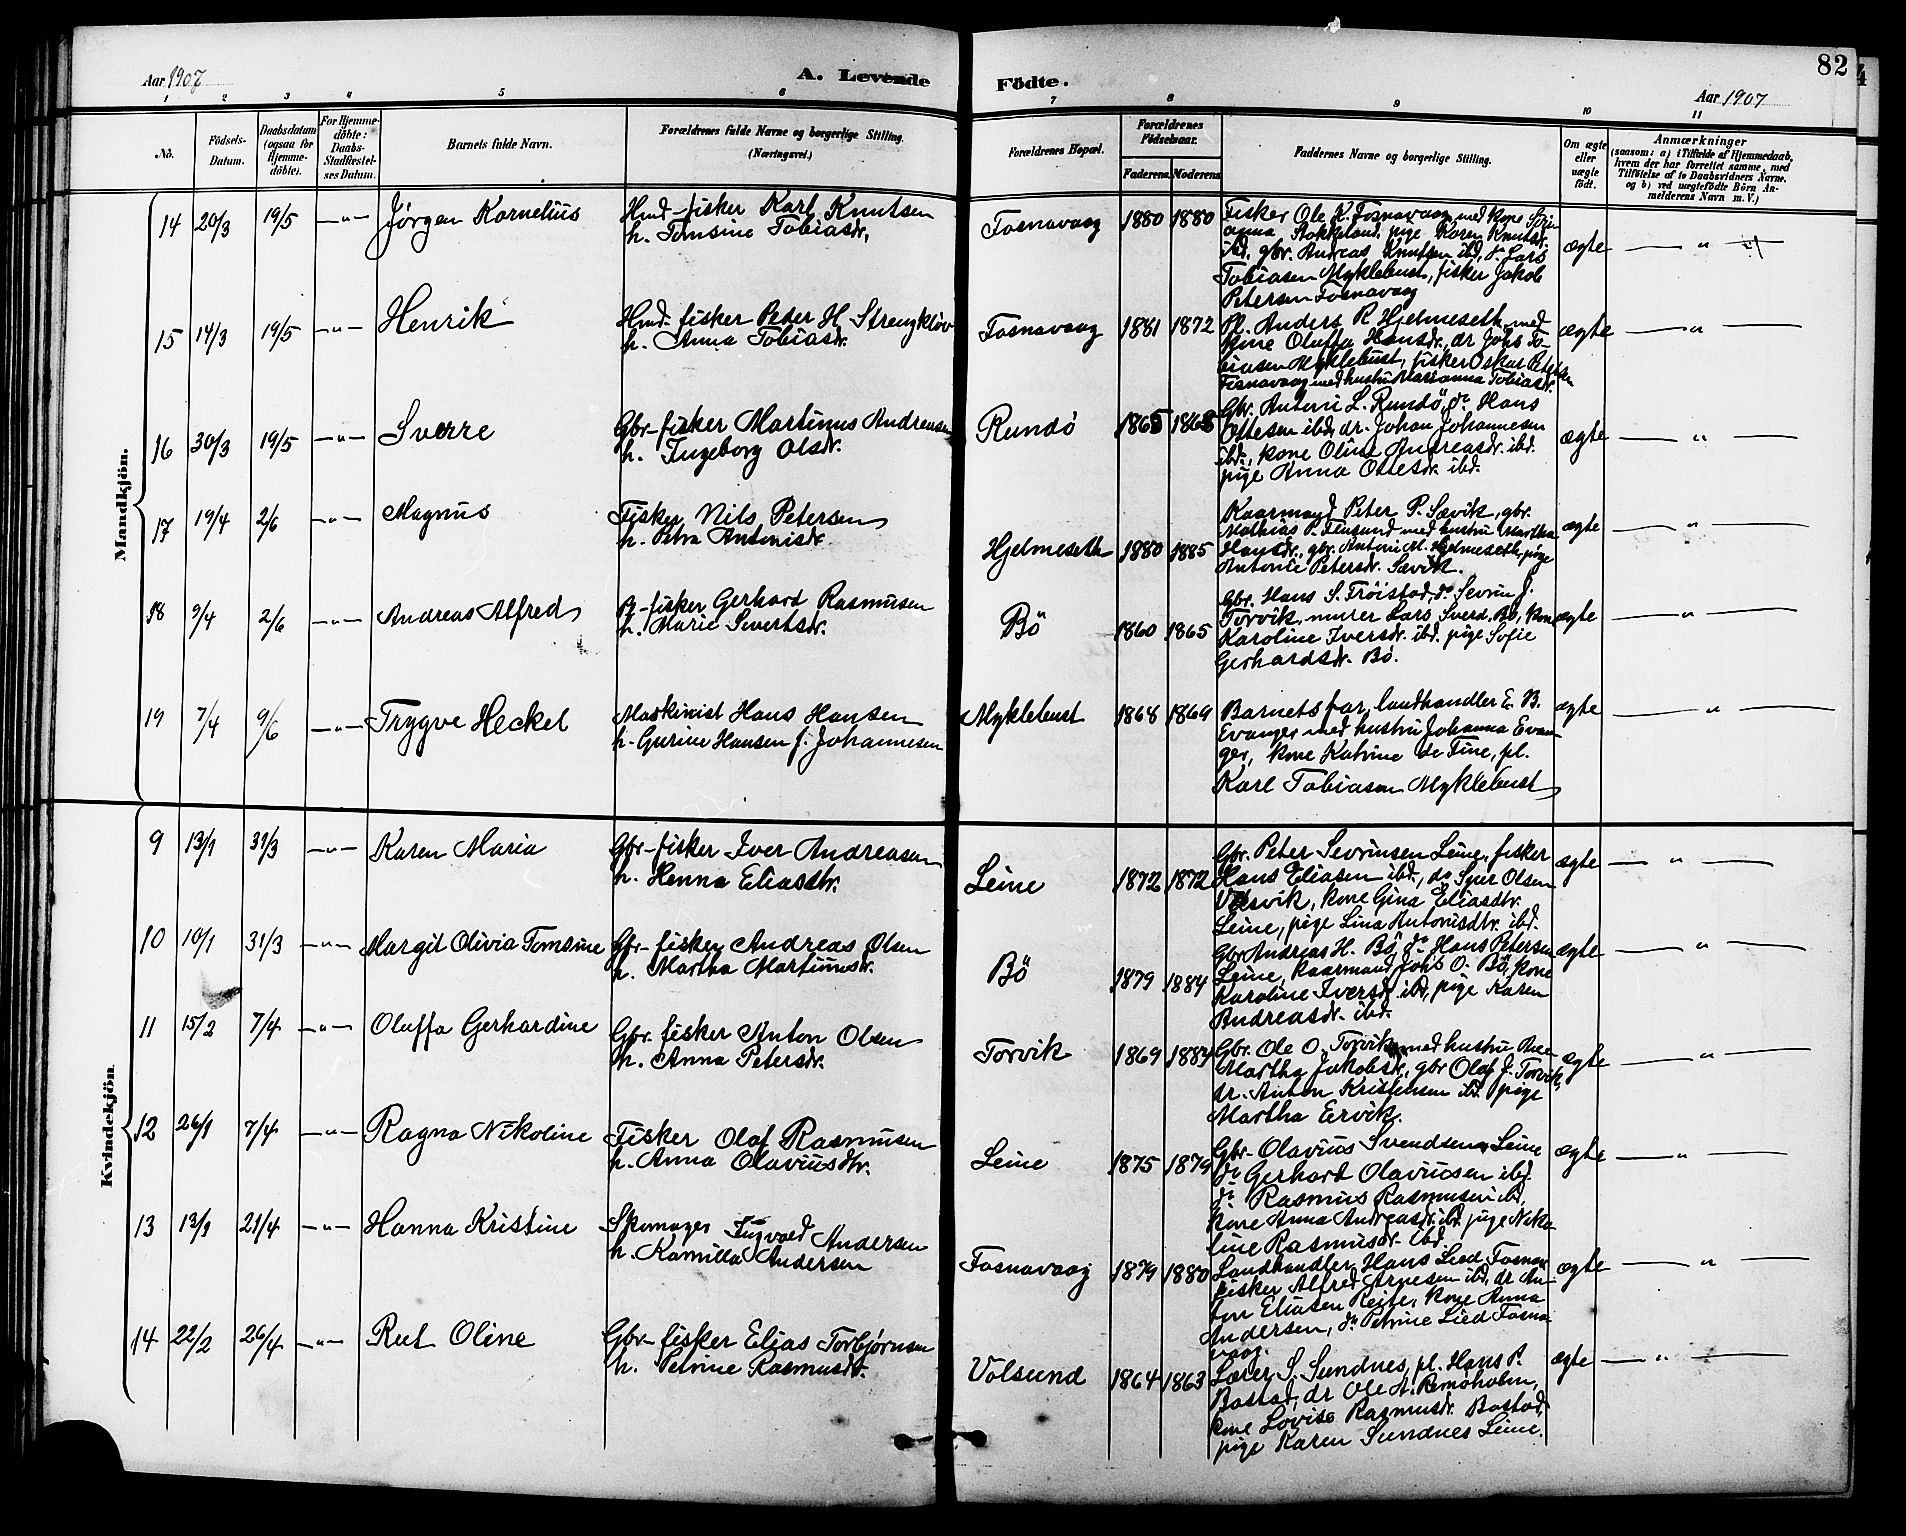 82
Aar 1907
A. Levende
Födte.
Aar 1907
1 2 3 4 5 6 7 8 9 10 11
No.
Födsels-Datum.
Daabsdatum (ogsaa for Hjemme-döbte).
For Hjemme-döbte: Daabs-Stadfæstel-ses Datum.
Barnets fulde Navn.
Forældrenes fulde Navne og borgerlige Stilling. (Næringsvei.)
Forældrenes Bopæl.
Forældrenes Födselsaar.
Faderens Moderens
Faddernes Navne og borgerlige Stilling.
Om ægte eller uægte födt.
Anmærkninger
(saasom: a) i Tilfælde af Hjemmedaab,
hvem der har forrettet samme, med
Tilföielse af to Daabsvidners Navne.
og b) ved uægtefödte Börn An-
melderens Navn m.V.)
Mandkjön.
14 20/3 19/5 —"— Jørgen Kornelius
Hmd-fisker Karl Knutsen
h. Tomsine Tobiasdr,
Fosnavaag 1880 1880
Fisker Ole K. Fosnavaag med kone
anna Stokkeland, pige Karen Knutsdr.
ibd. gbr. Andreas Knutsen ibd, dr Lars
Tobiasen Myklebust, fisker Jakob
Petersen Fosnavaag
ægte — " —
15 14/3 19/5 —"— Henrik
Hmd-fisker Peder H.
h. Anna Tobiasdr.
Fosnavaag 1881 1872
Pl. Anders R Hjelmeseth med
kone Oluffa Hansdr., dr Johs To-
biasen Myklebust, fisker Oskar Petersen
Fosnavaag med hustru Marianna Tobiasdr.
ægte — " —
16 30/3 19/5 —"— Sverre
Gbr-fisker Martinus Andreasen
h. Ingeborg Olsdr.
Rundö 1865 1868
Gbr. Antoni L. Rundö, do Hans
Ottesen ibd, dr. Johan Johannesen
ibd., kone Oline Andreasdr. ibd.
pige Anna Ottesdr. ibd.
ægte — " —
17 19/4 2/6 —"— Magnus
Fisker Nils Petersen
h. Petra Antonisdr.
Hjelmeseth 1880 1885
Kaarmand Peter P. Sævik, gbr.
Mathias P. Flusund med hustru Martha
Hansdr., gbr. Antoni M. Hjelmeseth, pige
Antonie Petersdr. Sævik.
ægte — " —
18 9/4 2/6 —"— Andreas Alfred
Pl-fisker Gerhard Rasmusen
h. Marie Sivertsdr.
Bö 1860 1865
Gbr. Hans S. Fröistad, do Sevrin J.
Torvik, murer Lars Sverd. Bö, kone
Karoline Iversdr. ibd. pige Sofie
Gerhardsdr. Bö.
ægte — " —
19 7/4 9/6 —"— Trygve Heckel
Maskinist Hans Hansen
h. Gurine Hansen f. Johannesen
Myklebust 1868 1869
Barnets far, landhandler E. B.
Evanger med hustru Johanna Evan-
ger, kone Katrine de Fine, pl.
Karl Tobiasen Myklebust
ægte — " —
Kvindekjön.
9 13/1 31/3 —"— Karen Maria
Gbr-fisker Iver Andreasen
h. Henna Eliasdtr.
Leine 1872 1872
Gbr. Peter Sevrinsen Leine, fisker
Hans Eliasen ibd., do Syver Olsen
Voldsvik, kone Gina Eliasdtr.
Leine, pige Lina Antonisdtr. ibd.
ægte — " —
10 10/1 31/3 —"— Margit Olivia Tomsine
Gbr-fisker Andreas Olsen
h. Martha Martinusdr.
Bö 1879 1884
Gbr Andreas H. Bö, do Hans Petersen
Leine, kaarmand Johs O. Bö, kone
Karoline Iversdr. ibd, pige Karen
Andreasdr. ibd.
ægte — " —
11 15/2 7/4 —"— Oluffa Gerhardine
Gbr. fisker Anton Olsen
h. Anna Petersdr.
Torvik 1869 1884
Gbr. Ole O. Torvik med hustru Ane
Martha Jakobsdr., gbr Olaf J. Torvik,
dr. Anton Kristensen ibd. pige
Martha Ervik.
ægte — " —
12 26/1 7/4 —"— Ragna Nikoline
Fisker Olaf Rasmusen
h. Anna Olaviusdtr.
Leine 1875 1879
Gbr. Olavius Svendsen Leine
do Gerhard Olaviusen ibd.
do Rasmus Rasmusen ibd,
kone Anna Andreasdr. ibd pige Niko-
line Rasmusdr. ibd.
ægte — " —
13 13/1 21/4 —"— Hanna Kristine
Skomager Ingvald Andersen
h. Kamilla Andersen
Fosnavaag 1879 1880
Landhandler Hans Lied Fosnav.
fisker Alfred Arnesen ibd, dr An-
ton Eliasen Reite, kone Anna
Andersen, do Petrine Lied Fosna-
vaag.
ægte — " —
14 22/2 26/4 —"— Rut Oline
Gbr-fisker Elias Torbjørnsen
h. Petrine Rasmusdr.
Volsund 1864 1863
Lærer S. Sundnes, pl. Hans P.
Bostad, dr Ole A. Remöholm,
kone Lovise Rasmusdr. Bostad,
pige Karen Sundnes Leine.
ægte — " —